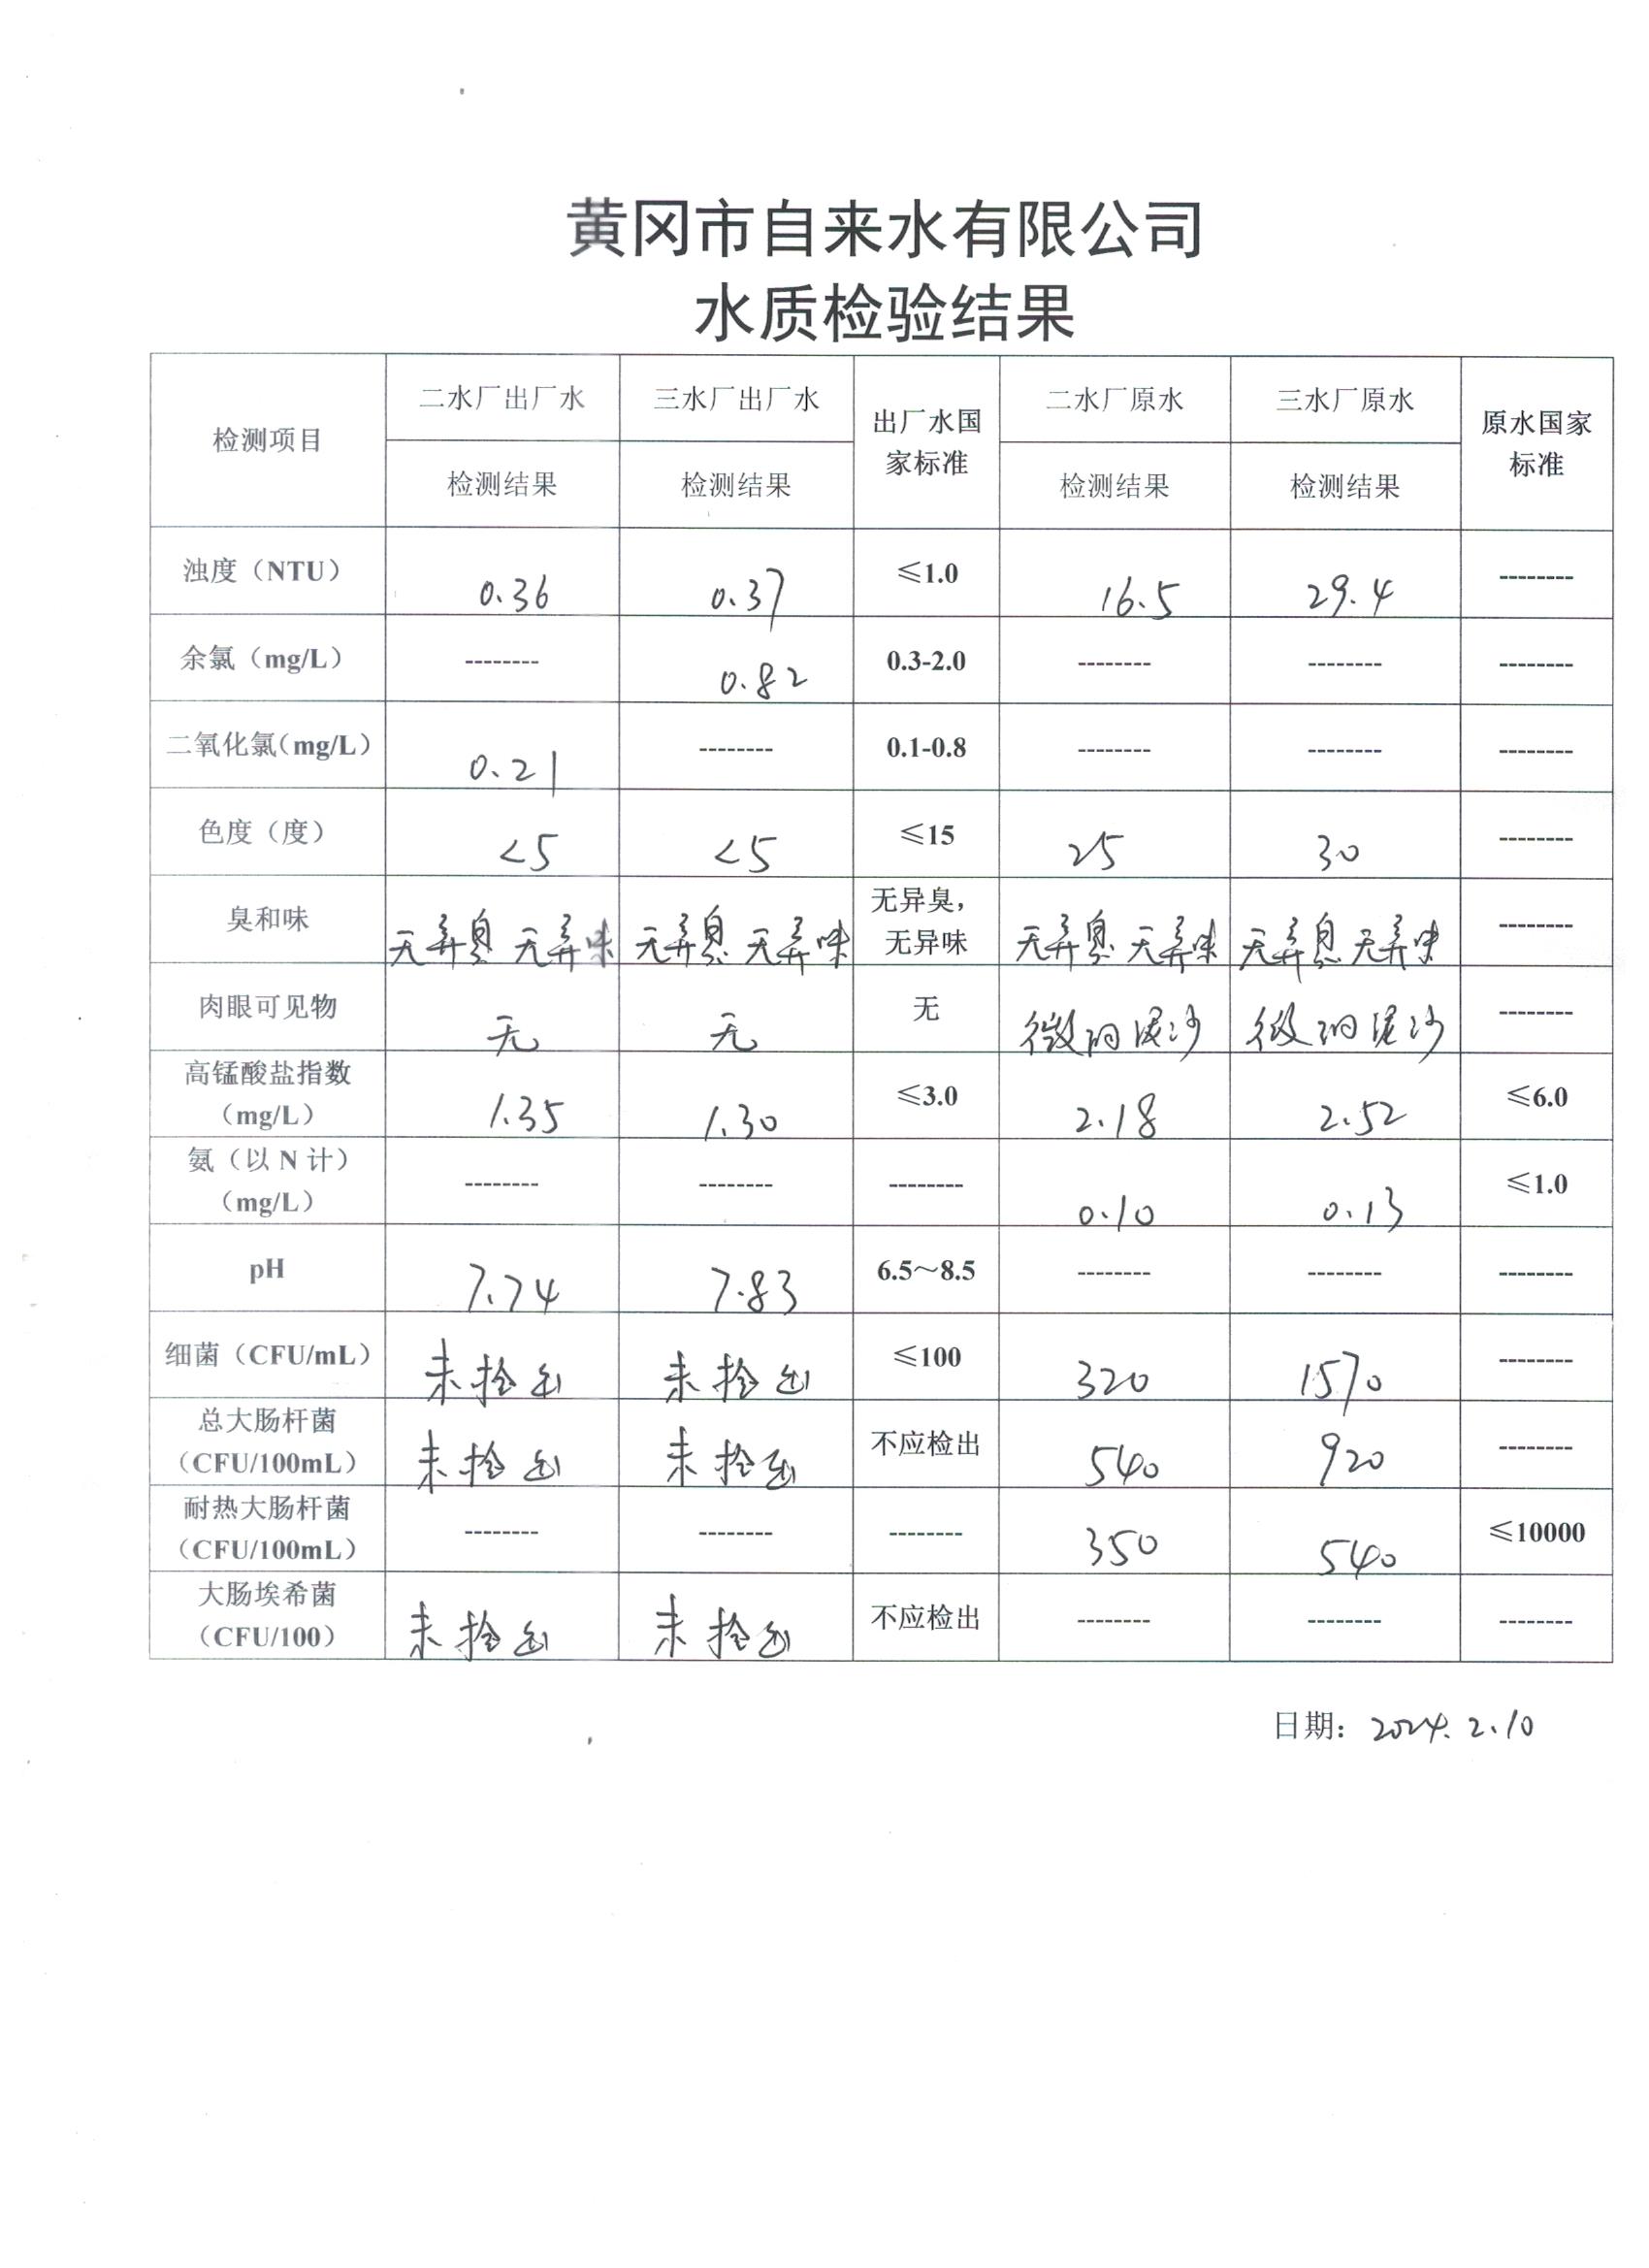 黄冈市自来水有限公司
水质检验结果
检测项目 二水厂出厂水 三水厂出厂水 出厂水国家标准 二水厂原水 三水厂原水 原水国家标准
检测结果 检测结果 检测结果 检测结果
浊度（NTU） 0.36 0.37 ≤1.0 16.5 29.4 --------
余氯（mg/L） -------- 0.82 0.3-2.0 -------- -------- --------
二氧化氯（mg/L） 0.21 -------- 0.1-0.8 -------- -------- --------
色度（度） <5 <5 ≤15 25 30 --------
臭和味 无异臭 无异味 无异臭 无异味 无异臭，无异味 无异臭 无异味 无异臭 无异味 --------
肉眼可见物 无 无 无 微的泥沙 微的泥沙 --------
高锰酸盐指数（mg/L） 1.35 1.30 ≤3.0 2.18 2.52 ≤6.0
氨（以 N 计）（mg/L） -------- -------- -------- 0.10 0.13 ≤1.0
pH 7.74 7.83 6.5～8.5 -------- -------- --------
细菌（CFU/mL） 未检出 未检出 ≤100 320 1570 --------
总大肠杆菌（CFU/100mL） 未检出 未检出 不应检出 540 920 --------
耐热大肠杆菌（CFU/100mL） -------- -------- -------- 350 540 ≤10000
大肠埃希菌（CFU/100） 未检出 未检出 不应检出 -------- -------- --------
日期：2024.2.10